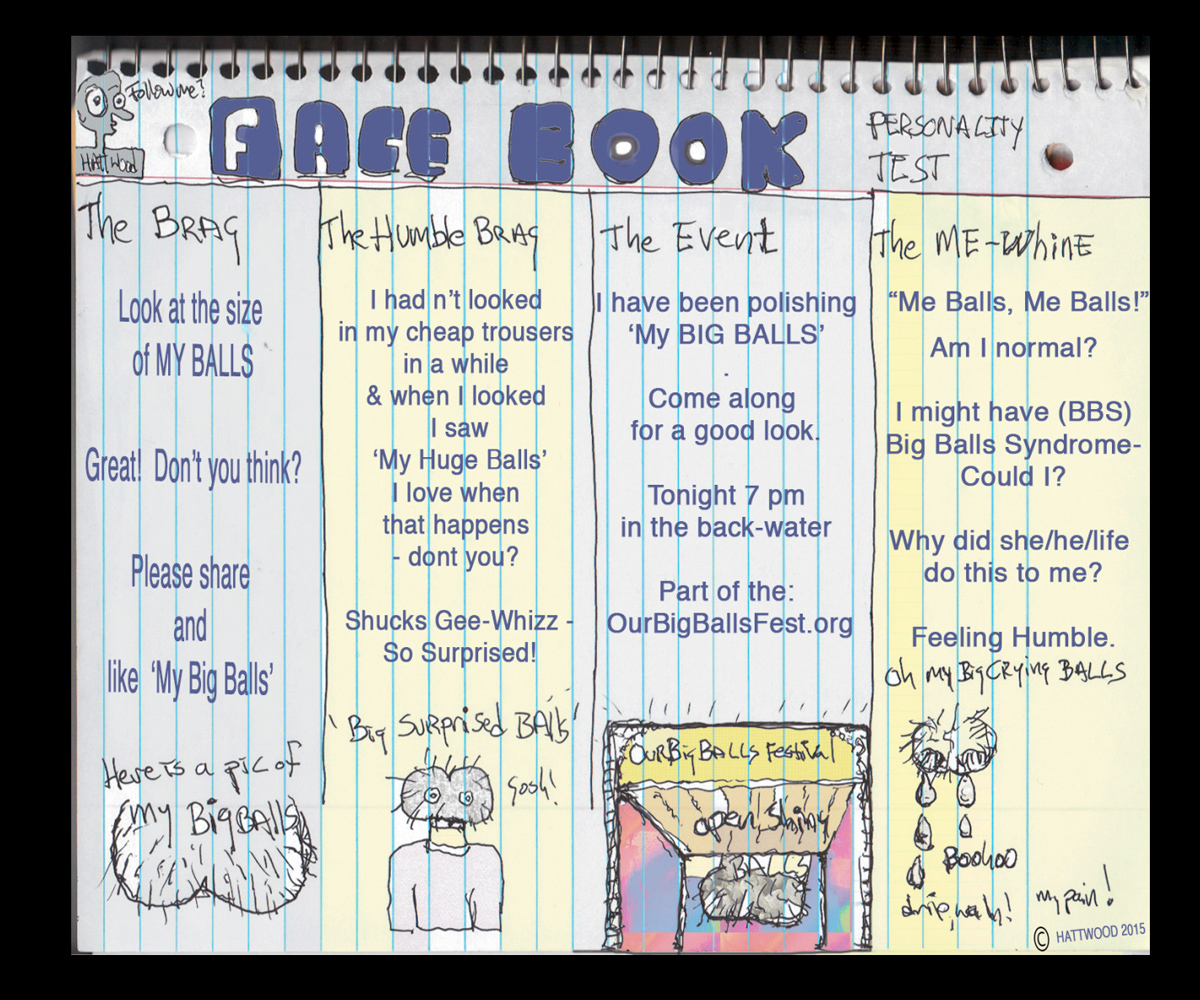 Follow me?
HATTWOOD
FACE BOOK
PERSONALITY
TEST
The BRAG
Look at the size
of MY BALLS
Great! Don't you think?
Please share
and
like 'My Big Balls'
Here is a pic of
my BigBALLS
The Humble BRAG
I had n't looked
in my cheap trousers
in a while
& when I looked
I saw
'My Huge Balls'
I love when
that happens
- dont you?
Shucks Gee-Whizz -
So Surprised!
'Big SURPRISED BAlls'
Gosh!
The Event
I have been polishing
'My BIG BALLS'
.
Come along
for a good look.
Tonight 7 pm
in the back-water
Part of the:
OurBigBallsFest.org
OURBigBALLS Festival
open Shiny
BALLS
The ME-WhinE
“Me Balls, Me Balls!”
Am I normal?
I might have (BBS)
Big Balls Syndrome-
Could I?
Why did she/he/life
do this to me?
Feeling Humble.
oh my BigCRying BALLS
BOOHOO
drip, wah!
my pain!
© HATTWOOD 2015